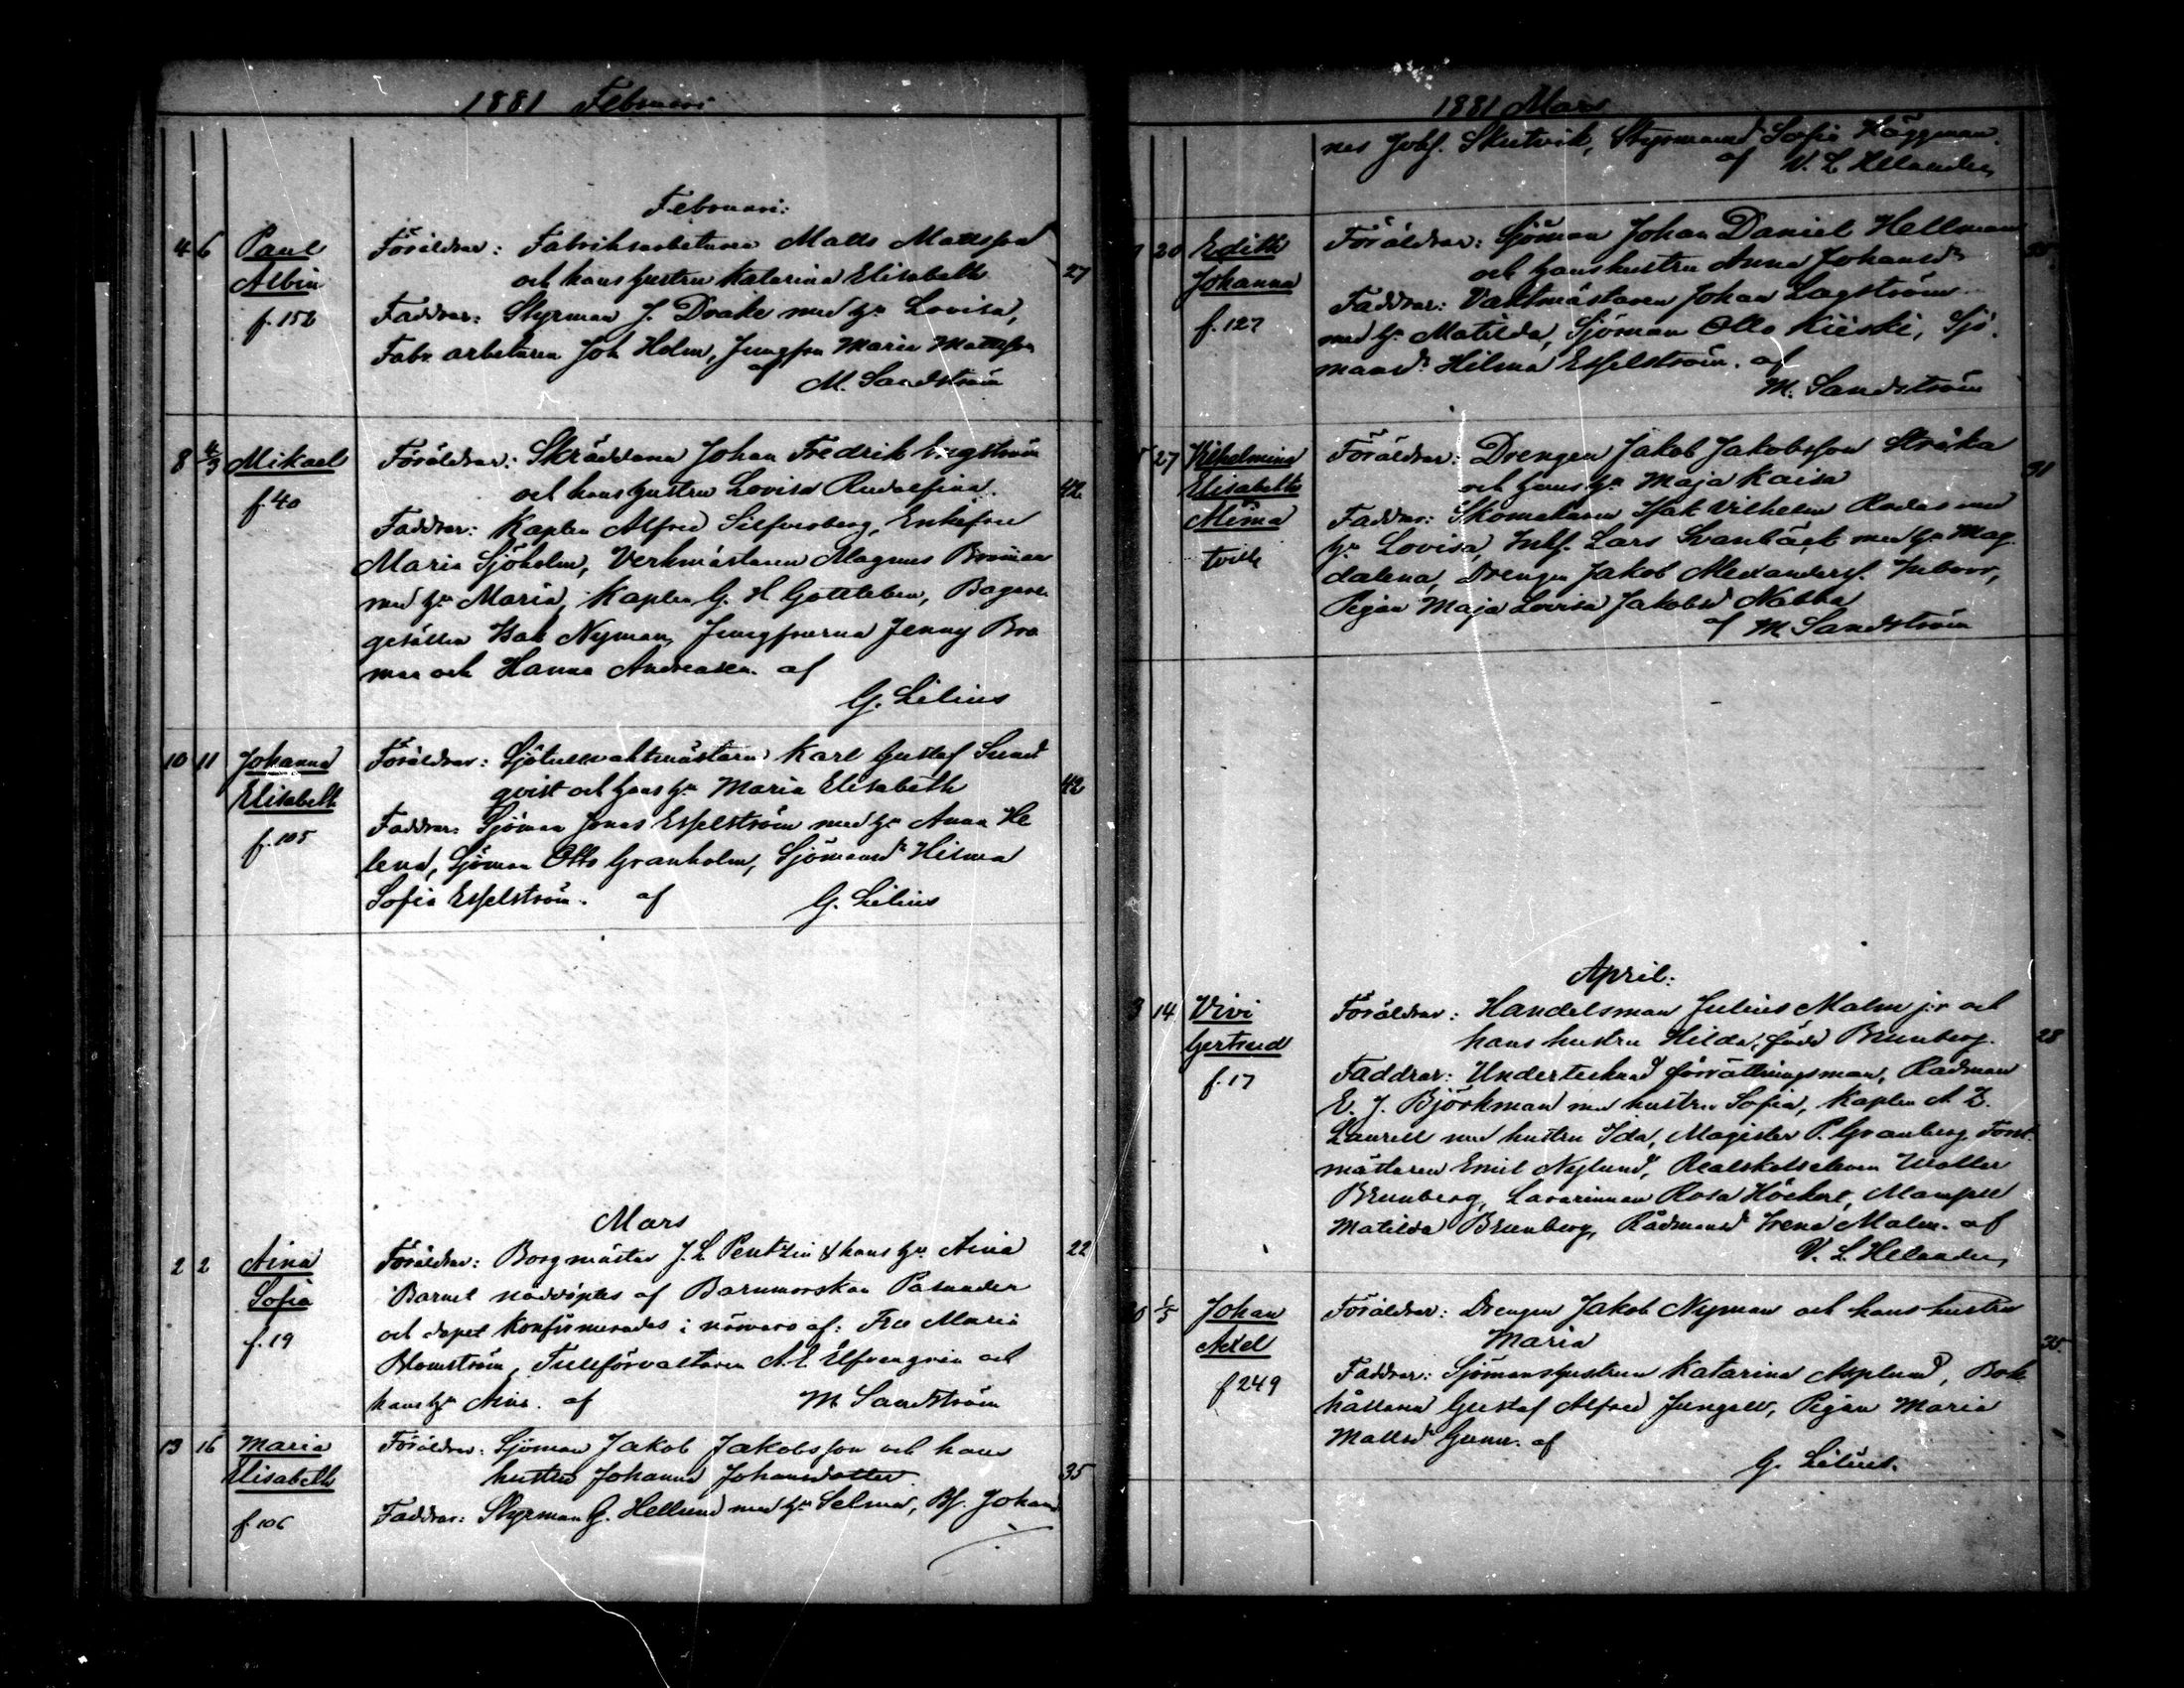 1881 Februari
Februari:
4 6 Paul Föräldrar: Fabriksarbetaren Matts Mattsson
Albin och hans hustru Katarina Elisabeth 27
f. 152 Faddrar: Styrman J. Drake med hu Lovisa,
Fabr. arbetaren Joh Holm, Jungfru Maria Mattsson
af M. Sandström
8 Mikael Föräldrar: Skräddaren Johan Fredrik Engström
f. 40 och hans hustru Lovisa Rudolfina. 42
Faddrar: Kapten Alfred Silfverberg, Enkefru
Maria Sjöholm, Verkmästaren Magnus Broman
med hu Maria, Kapten G. H. Gottleben, Bagare
gesällen Isak Nyman, Jungfruarna Jenny Bro
man och Hanna Andreasen. af
G. Lilius
10 11 Johanna Föräldrar: Sjötullvaktmästaren Karl Gustaf Sund
Elisabeth qvist och hans hu Maria Elisabeth 42
f. 105 Faddrar: Sjöman Jonas Esselström med hu Anna He
lena, Sjöman Otto Granholm, Sjömansdr Hilma
Sofia Esselström. af G. Lilius
Mars
2 2 Aina Föräldrar: Borgmästar J. L. Pentzin & hans hu Aina 22
Sofia Barnet nöddöptes af Barnmorskan
f. 19 och dopet konfirmerades i närvaro af: Fru Maria
Blomström, Tullförvaltaren A. L. Elfvengren och
hans hu Aina. af M. Sandström
13 16 Maria Föräldrar: Sjöman Jakob Jakobsson och hans
Elisabeth hustru Johanna Johansdotter 35
f. 106 Faddrar: Styrman G. Hellund med hu Selma, Bf. Johan
1881 Mars
nes Johs. Skutvik, Styrmansdr Sofia Häggman.
af V. L. Helander
20 Edith Föräldrar: Sjöman Johan Daniel Hellman
Johanna och hans hustru Anna Johansdr
f. 127 Faddrar: Vaktmästaren Johan Lagström
med hu Matilda, Sjöman Otto Kiiski, Sjö
mansdr Hilma Esselström. af
M. Sandström
27 Vilhelmina Föräldrar: Drengen Jakob Jakobsson Stråka
Elisabeth och hans hu Maja Kaisa 31
Alma Faddrar: Skomakaren Isak Vilhelm med
hu Lovisa, Inhs. Lars Svanbäck med hu Mag
dalena, Drengen Jakob Alexanders.
Pigan Maja Lovisa Jakobsd Nabba
af M. Sandström
April:
3 14 Vivi Föräldrar: Handelsman Julius Malm j:r och
Gertrud hans hustru Hilda, född Brunberg. 28
f. 17 Faddrar: Undertecknad förrättningsman, Rådman
E. J. Björkman med hustru Sofia, Kapten A. Z.
Laurell med hustru Ida, Magister P. Granberg, Forst
mästaren Emil Nylund, Realskolseleven Walter
Brunberg, Lärarinnan Rosa Höckert, Mamsell
Matilda Brunberg, Rådmansdr Irene Malm. af
V. L. Helander
Johan Föräldrar: Drengen Jakob Nyman och hans hustru
Axel Maria
f 249 Faddrar: Sjömanshustrun Katarina Asplund, Bok
hållaren Gustaf Alfred Jungell, Pigan Maria
Mattsdr Gunn. af
G. Lilius.